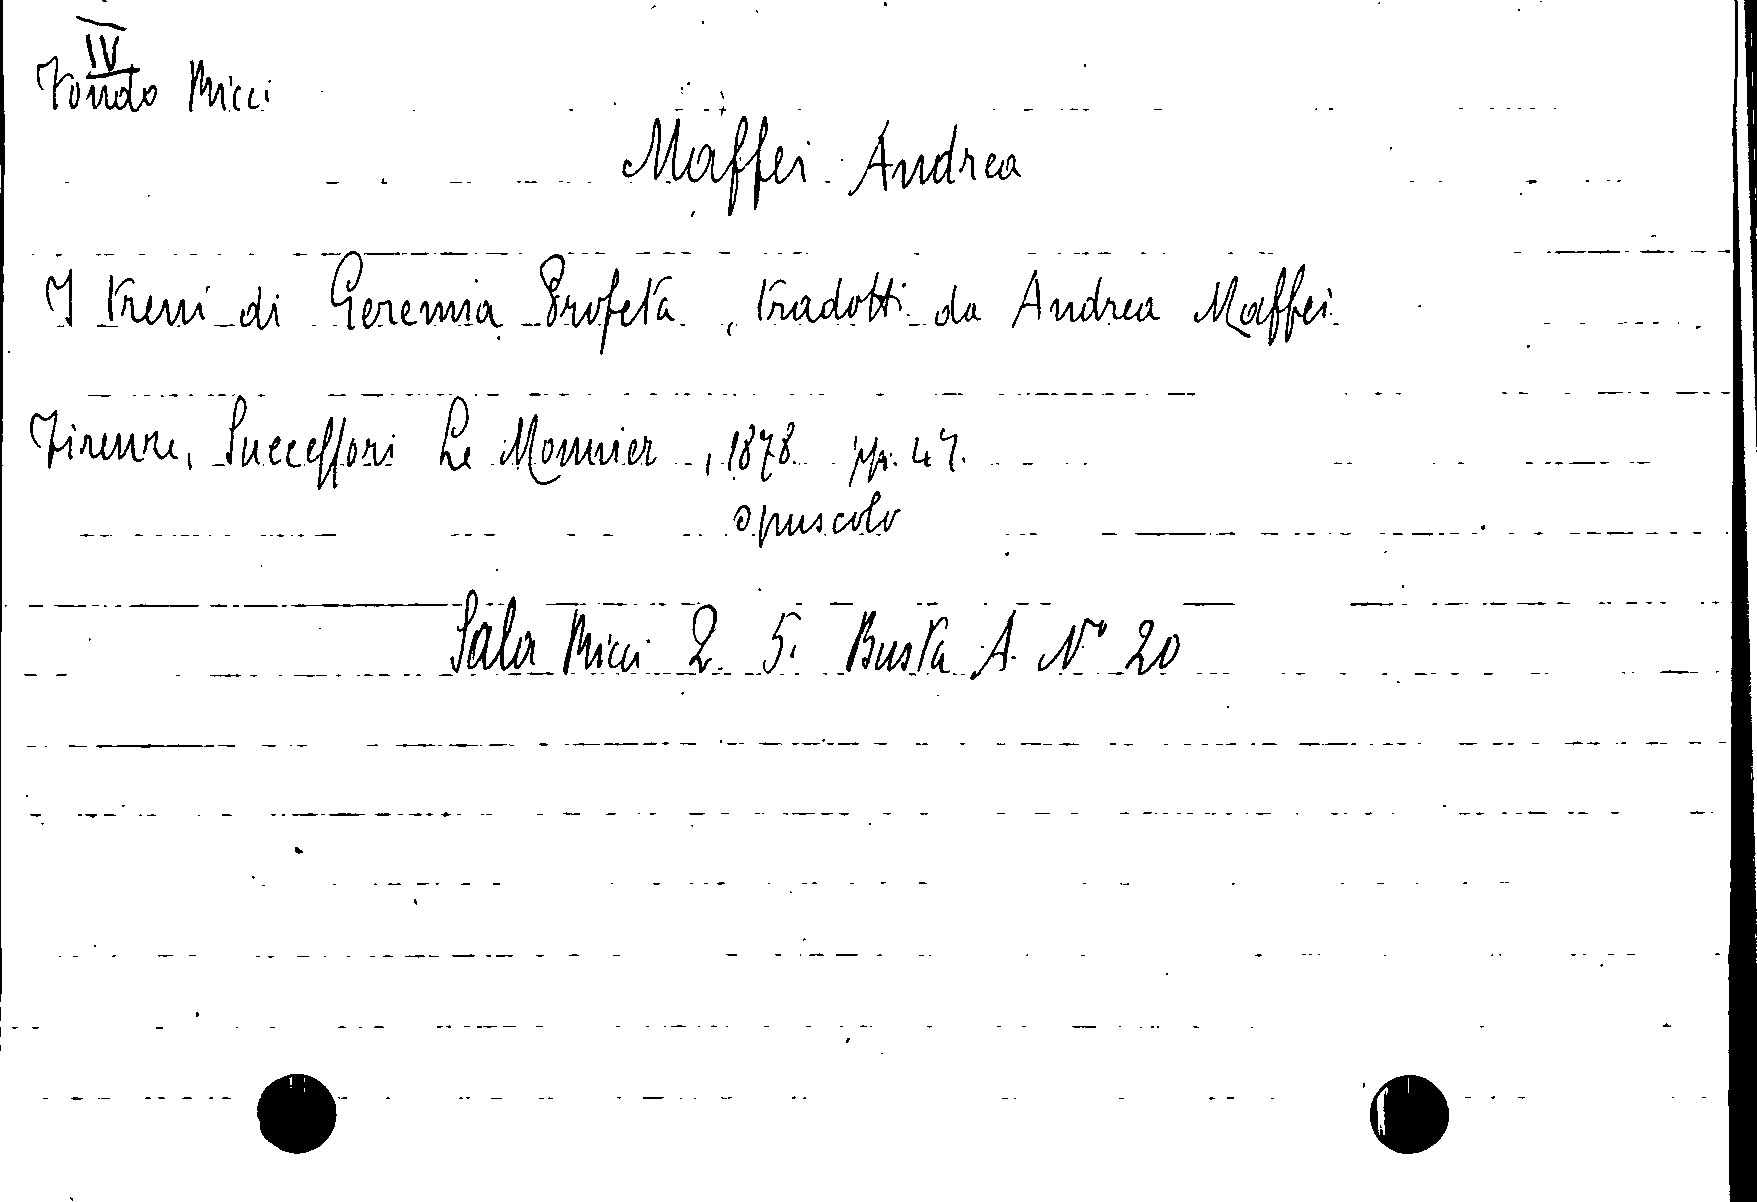 IV
Fondo Micci
Maffei Andrea
I treni di Geremia Profeta, tradotti da Andrea Maffei
Firenze, Successori Le Monnier, 1878 pp. 47.
opuscolo
Sala Micci 2. 5. Busta A. N° 20